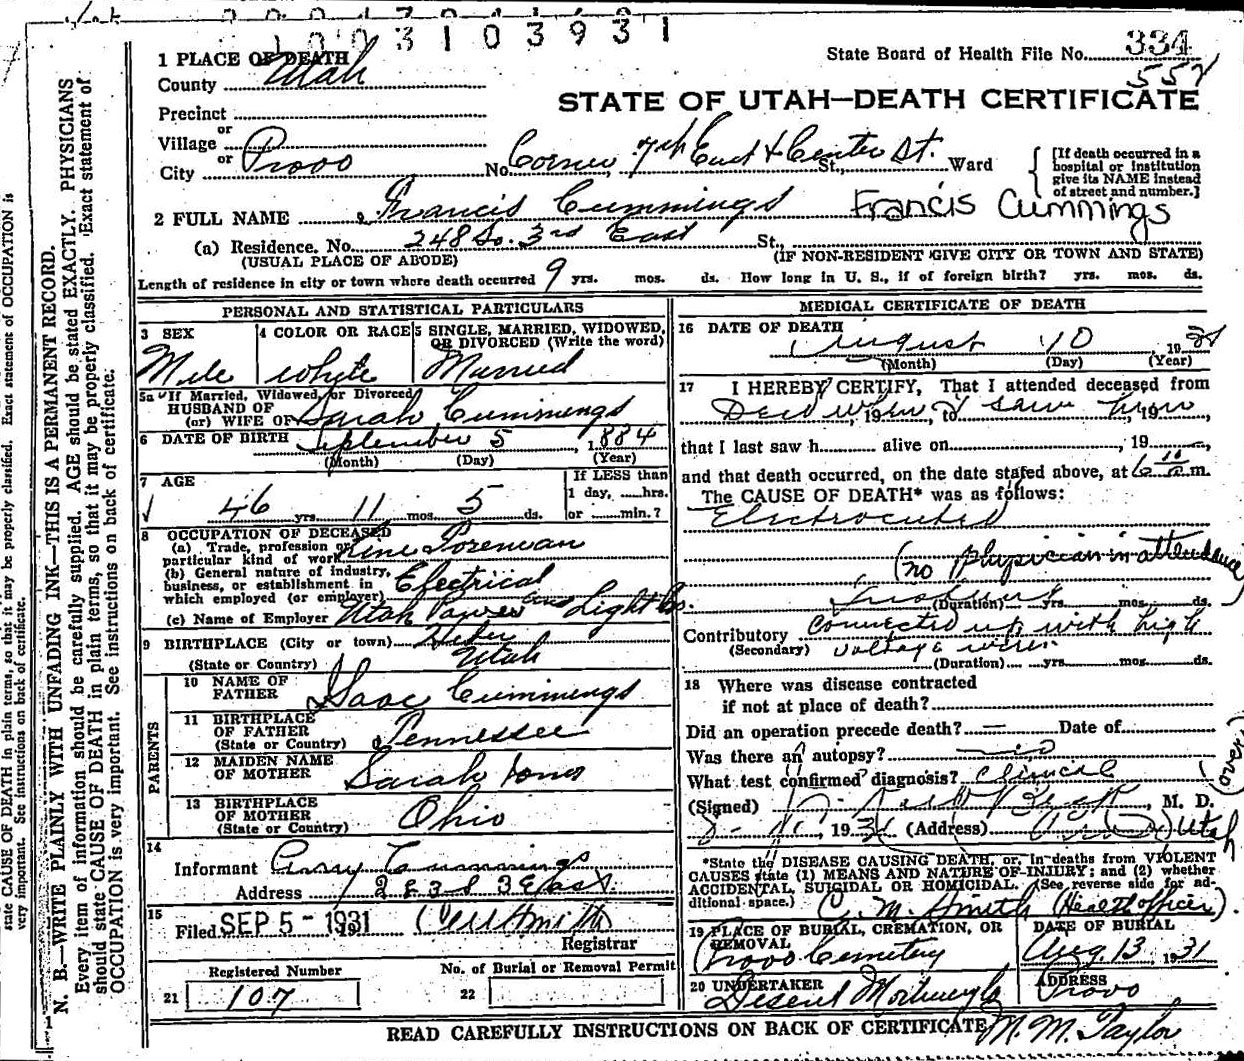 1003103931
State Board of Health File No. 334
552
STATE OF UTAH—DEATH CERTIFICATE
1 PLACE OF DEATH
County Utah
Precinct
or
Village
or
City Provo No. Corner, 7th East & Center St. St., Ward
[If death occurred in a hospital or institution give its NAME instead of street and number.]
2 FULL NAME Francis Cummings Francis Cummings
(a) Residence. No. 248 So. 3rd East St.,
(USUAL PLACE OF ABODE) (IF NON-RESIDENT GIVE CITY OR TOWN AND STATE)
Length of residence in city or town where death occurred 9 yrs. mos. ds. How long in U. S., if of foreign birth? yrs. mos. ds.
PERSONAL AND STATISTICAL PARTICULARS
3 SEX 4 COLOR OR RACE 5 SINGLE, MARRIED, WIDOWED,
OR DIVORCED (Write the word)
Male White Married
5a If Married, Widowed, or Divorced
HUSBAND OF
(or) WIFE OF Sarah Cummings
6 DATE OF BIRTH September 5, 1884
(Month) (Day) (Year)
7 AGE If LESS than
1 day, hrs.
46 yrs. 11 mos. 5 ds. or min.?
8 OCCUPATION OF DECEASED
(a) Trade, profession or
particular kind of work Line Foreman
(b) General nature of industry,
business, or establishment in
which employed (or employer) Electrical
(c) Name of Employer Utah Power and Light Co.
9 BIRTHPLACE (City or town) Heber
(State or Country) Utah
PARENTS
10 NAME OF
FATHER Isaac Cummings
11 BIRTHPLACE
OF FATHER
(State or Country) Tennessee
12 MAIDEN NAME
OF MOTHER Sarah
13 BIRTHPLACE
OF MOTHER
(State or Country) Ohio
14
Informant Cummings
Address 3 East
15
Filed SEP 5 - 1931 Smith
Registrar
Registered Number No. of Burial or Removal Permit
21 107 22
MEDICAL CERTIFICATE OF DEATH
16 DATE OF DEATH
August 10 19
(Month) (Day) (Year)
17 I HEREBY CERTIFY, That I attended deceased from
Dead when, 19 to I saw him, 19
that I last saw h alive on , 19
and that death occurred, on the date stated above, at 6 10 a.m.
The CAUSE OF DEATH* was as follows:
Electrocuted
(no physician in attendance)
Instant (Duration) yrs. mos. ds.
Contributory Connected up with high
(Secondary) voltage wires
(Duration) yrs. mos. ds.
18 Where was disease contracted
if not at place of death?
Did an operation precede death? — Date of
Was there an autopsy? no
What test confirmed diagnosis? clinical
(over)
(Signed) , M. D.
8- , 1931 (Address) Utah
*State the DISEASE CAUSING DEATH, or, in deaths from VIOLENT
CAUSES state (1) MEANS AND NATURE OF INJURY; and (2) whether
ACCIDENTAL, SUICIDAL OR HOMICIDAL. (See reverse side for ad-
ditional space.) C. M. Smith (Health officer).
19 PLACE OF BURIAL, CREMATION, OR REMOVAL DATE OF BURIAL
Provo Cemetery Aug. 13, 1931
20 UNDERTAKER ADDRESS
Deseret Mortuary Co Provo
READ CAREFULLY INSTRUCTIONS ON BACK OF CERTIFICATE M. M. Taylor
N. B.—WRITE PLAINLY WITH UNFADING INK—THIS IS A PERMANENT RECORD.
Every item of information should be carefully supplied. AGE should be stated EXACTLY. PHYSICIANS
should state CAUSE OF DEATH in plain terms, so that it may be properly classified. Exact statement of
OCCUPATION is very important. See instructions on back of certificate.
state CAUSE OF DEATH in plain terms, so that it may be properly classified. Exact statement of OCCUPATION is
very important. See instructions on back of certificate.